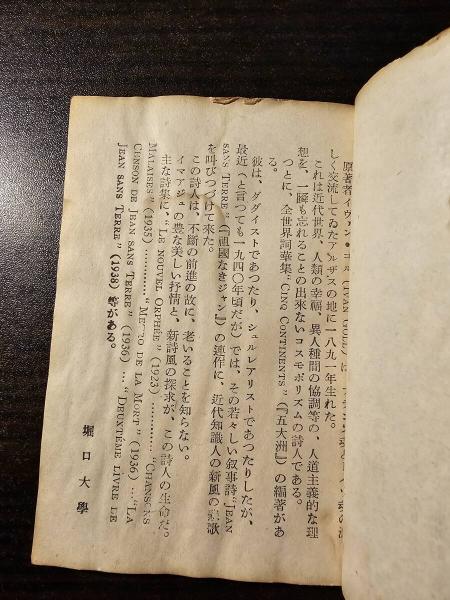 原著者イヴァン・ゴル (IVAN GOLL) は、
しく交流してゐたアルザスの地に一八九一年生れた。
これは近代世界、人類の幸福、異人種間の協調等の、人道主義的な理
想を、一瞬も忘れることの出來ないコスモポリズムの詩人である。
つとに、全世界詞華集“CINQ CONTINENTS”(『五大洲』)の編著があ
る。
彼は、ダダイストであつたり、シュルレアリストであつたりしたが、
最近(と言つても一九四〇年頃だが)では、その若々しい叙事詩“JEAN
SANS TERRE”(『祖國なきジャン』)の連作に、近代知識人の新風の悲歌
を叫びつづけて來た。
この詩人は、不斷の前進の故に、老いることを知らない。
イマアジュの豊な美しい抒情と、新詩風の探求が、この詩人の生命だ。
主な詩集に、“LE NOUVEL ORPHÉE” (1923) ………… “CHANSONS
MALAISES” (1935) ………… “METRO DE LA MORT” (1936) … “LA
CHNSON DE JEAN SANS TERRE” (1936) … “DEUXTÉME LIVRE DE
JEAN SANS TERRE” (1938) 等がある。
堀口大學